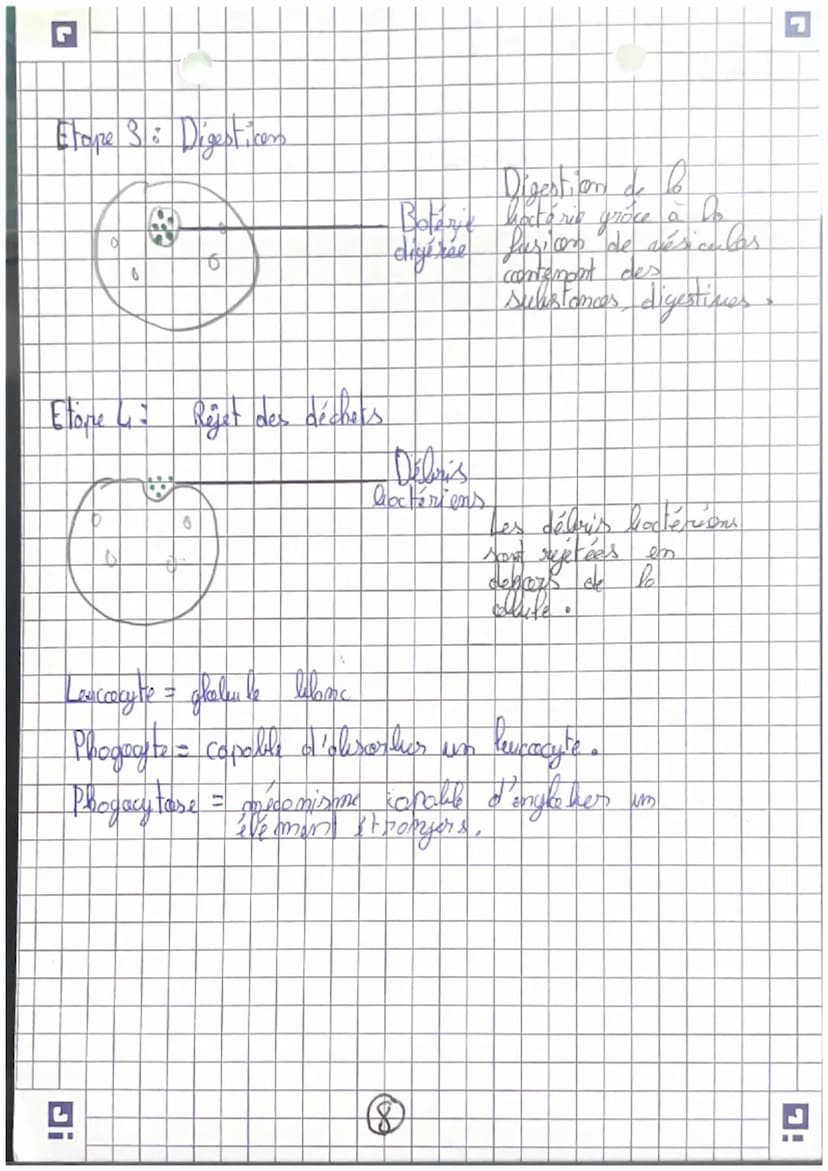 Etape 3 : Digestion
Batérie
digérée
Digestion de la
bactérie grâce à la
fusion de vésicules
contenant des
substances digestives.
Etape 4 : Rejet des déchets
Débris
bactériens
Les débris bactériens
sont rejetées en
dehors de la
cellule.
Leucocyte = globule blanc
Phagocyte = capable d'absorber un leucocyte.
Phagocytose = mécanisme capable d'englober un
élément étrangers.
8